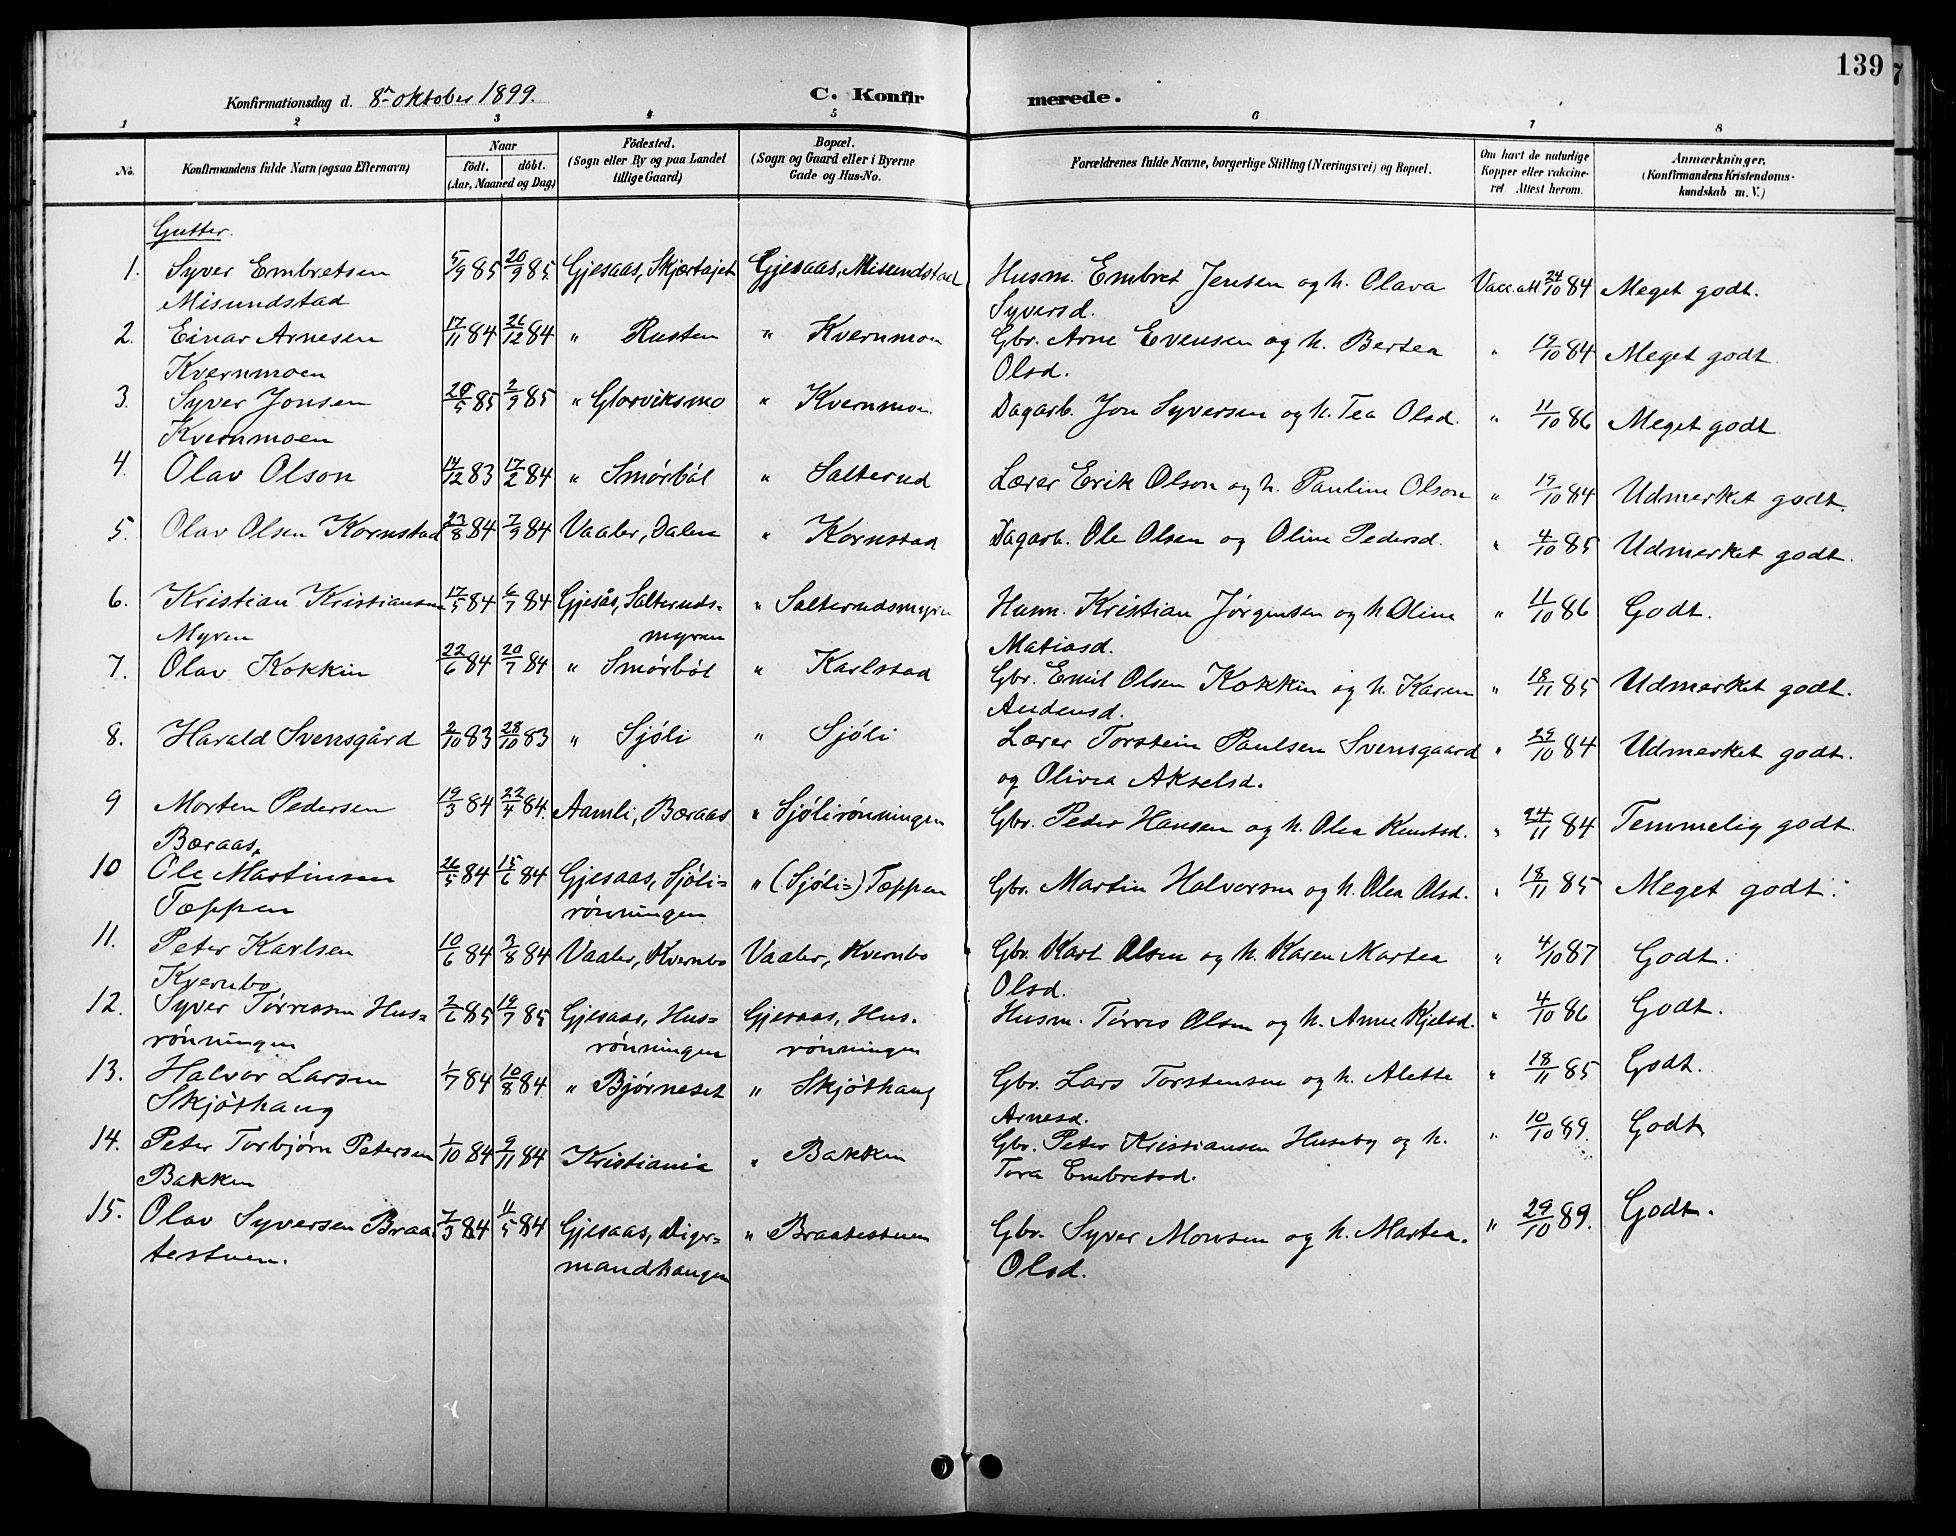 139
Konfirmationsdag d. 8de oktober 1899. C. Konfirmerede.
1 2 3 4 5 6 7 8
No. Konfirmandens fulde Navn (ogsaa Efternavn) Naar født. døbt. (Aar, Maaned og Dag) Fødested. (Sogn eller By og paa Landet tillige Gaard) Bopæl. (Sogn og Gaard eller i Byerne Gade og Hus-No. Forældrenes fulde Navne, borgerlige Stilling (Næringsvei) og Bopæl. Om havt de naturlige Kopper eller vakcineret Attest herom. Anmærkninger. (Konfirmandens Kristendomskundskab m. V.)
Gutter.
1. Syver Embretsen 5/9 85 20/9 85. Gjesaas, Skjærtajet Gjesaas, Misundstad Husm. Embret Jensen og h. Olava Vacc. att. 24/10 84 Meget godt.
Misundstad Syversd.
2. Einar Arnesen 17/11 84 26/12 84 " Rusten " Kvernmoen Gbr. Arne Evensen og h. Bertea " 19/10 84 Meget godt
Kvernmoen Olsd.
3. Syver Jonsen 20/5 85 2/9 85 " Glorviksmo " Kvernmoen Dagarb. Jon Syversen og h. Tea Olsd. " 11/10 86 Meget godt
Kvernmoen
4. Olav Olson 14/12 83 17/2 84 " Smørbøl " Salterud Lærer Erik Olson og h. Pauline Olson " 19/10 84 Udmerket godt.
5. Olav Olsen Kornstad 23/8 84 7/9 84 Vaaler, Dalen " Kornstad Dagarb. Ole Olsen og Oline Pedersd. " 4/10 85 Udmerket godt.
6. Kristian Kristiansen 17/5 84 6/7 84 Gjesås, Salteruds- " Salterudsmyren Husm. Kristian Jørgensen og h Oline " 11/10 86 Godt.
Myren myren Matiasd.
7. Olav Kokkin 22/6 84 20/7 84 " Smørbøl " Karlstad Gbr. Emil Olsen Kokkin og h. Karen " 18/11 85 Udmerket godt.
Andensd.
8. Harald Svensgård 2/10 83 28/10 83 " Sjøli " Sjøli Lærer Torstein Paulsen Svensgaard " 29/10 84 Udmerket godt.
og Olivia Akselsd.
9 Morten Pedersen 19/3 84 22/4 84. Aamli, Bæraas " Sjølirønningen Gbr. Peder Hansen og h. Olea Knutsd. " 24/11 84 Temmelig godt.
Bæraas,
10 Ole Martinsen 26/5 84 15/6 84 Gjesaas, Sjøli= " (Sjøli=) Tæppen Gbr. Martin Halvorsen og h. Olea Olsd. " 18/11 85 Meget godt.
Tæppen rønningen
11. Peter Karlsen 10/6 84 3/8 84 Vaaler, Kvernbo Vaaler, Kvernbo Gbr. Karl Olsen og h. Karen Martea " 4/10 87 Godt.
Kvernbo Olsd.
12. Syver Tørrissen Hus= 2/6 85 19/7 85 Gjesaas, Hus= Gjesaas, Hus. Husm. Tørris Olsen og h. Anne Kjelsd. " 4/10 86 Godt.
rønningen rønningen rønningen
13. Halvor Larsen 1/7 84 10/8 84 " Bjørneset " Skjøthaug Gbr. Lars Torstensen og h. Alette " 18/11 85 Godt.
Skjøthaug Arnesd.
14. Peter Torbjørn Petersen 1/10 84 9/11 84 Kristiania " Bakken Gbr. Peter Kristiansen Huseby og h. " 10/10 89. Godt,
Bakken Tora Embretsd.
15. Olav Syversen Braa 7/3 84 11/5 84 Gjesaas, Diger= " Braatestuen Gbr. Syver Monsen og h. Martea. " 29/10 89. Godt.
testuen. mandhaugen Olsd.